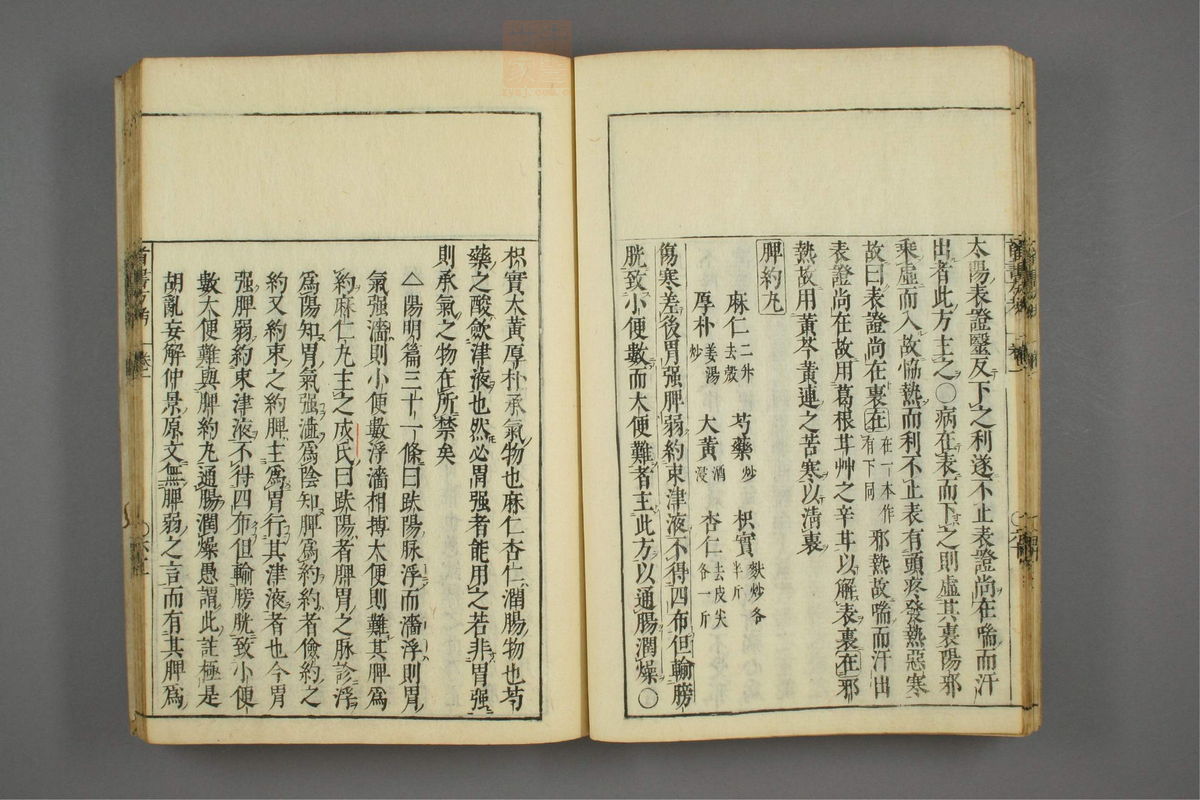 太陽表證毉反下之利遂不止表證尚在喘而汗
出者此方主之〇病在表而下之則虛其裏陽邪
乘虛而入故恊熱而利不止表有頭疼發熱惡寒
故曰表證尚在裏在在一本作有下同邪熱故喘而汗出
表證尚在故用葛根甘艸之辛甘以解表裏在邪
熱故用黃芩黃連之苦寒以清裏
脾約丸
麻仁二升去殼 芍藥炒 枳實麩炒各半斤
厚朴姜湯炒 大黃酒浸 杏仁去皮尖各一斤
傷寒差後胃强脾弱約束津液不得四布但輸膀
胱致小便數而大便難者主此方以通腸潤燥〇
枳實大黃厚朴承氣物也麻仁杏仁潤腸物也芍
藥之酸歛津液也然必胃强者能用之若非胃强
則承氣之物在所禁矣
△陽明篇三十一條曰趺陽脉浮而濇浮則胃
氣强濇則小便數浮濇相摶大便則難其脾爲
約麻仁丸主之成氏曰趺陽者脾胃之脉診浮
爲陽知胃氣强濇爲陰知脾爲約約者儉約之
約又約束之約脾主爲胃行其津液者也今胃
强脾弱約束津液不得四布但輸膀胱致小便
數大便難與脾約丸通腸潤燥愚謂此註極是
胡亂妄解仲景原文無脾弱之言而有其脾爲